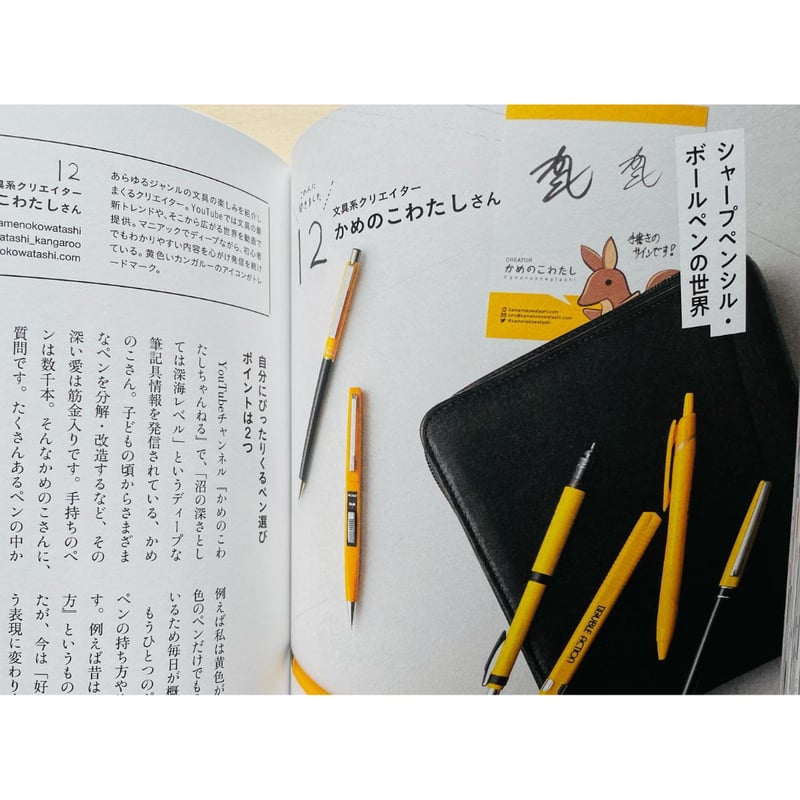 12
文具系クリエイター
こわたしさん
amenokowatashi
atashi_kangaroo
okowatashi.com
あらゆるジャンルの文具の楽しみを紹介し
まくるクリエイター。YouTubeでは文具の最
新トレンドや、そこから広がる世界を動画で
提供。マニアックでディープながら、初心者
でもわかりやすい内容を心がけ発信を続け
ている。黄色いカンガルーのアイコンがトレ
ードマーク。
自分にぴったりくるペン選び
ポイントは2つ
YouTubeチャンネル『かめのこわ
たしちゃんねる』で、「沼の深さとし
ては深海レベル」というディープな
筆記具情報を発信されている、かめ
のこさん。子どもの頃からさまざま
なペンを分解・改造するなど、その
深い愛は筋金入りです。手持ちのペ
ンは数千本。そんなかめのこさんに、
質問です。たくさんあるペンの中か
例えば私は黄色が
色のペンだけでも
いるため毎日が概
もうひとつのポ
ペンの持ち方や
す。例えば昔は
方』というもの
たが、今は「好
う表現に変わり
この人に
聞きました!
12
文具系クリエイター
かめのこわたしさん
手書きの
サインです!
CREATOR
かめのこわたし
Kamenokowatashi
kamenokowatashi.com
info@kamenokowatashi.com
@kamenokowatashi
シャープペンシル・
ボールペンの世界
DOUBLE ACTION